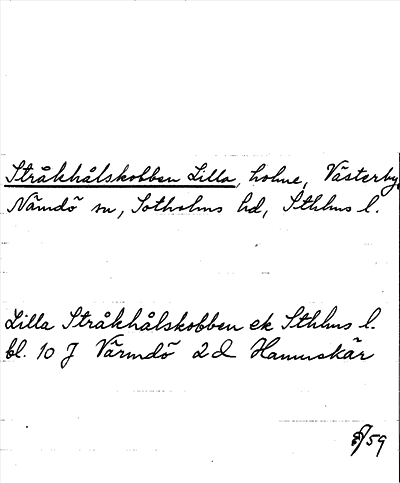 Stråkhålskobben Lilla, holme, Västerby,
Nämdö sn, Sotholms hd, Sthlms l.
Lilla Stråkhålskobben ek Sthlms l.
bl. 10 J Värmdö 2d Hamnskär
59